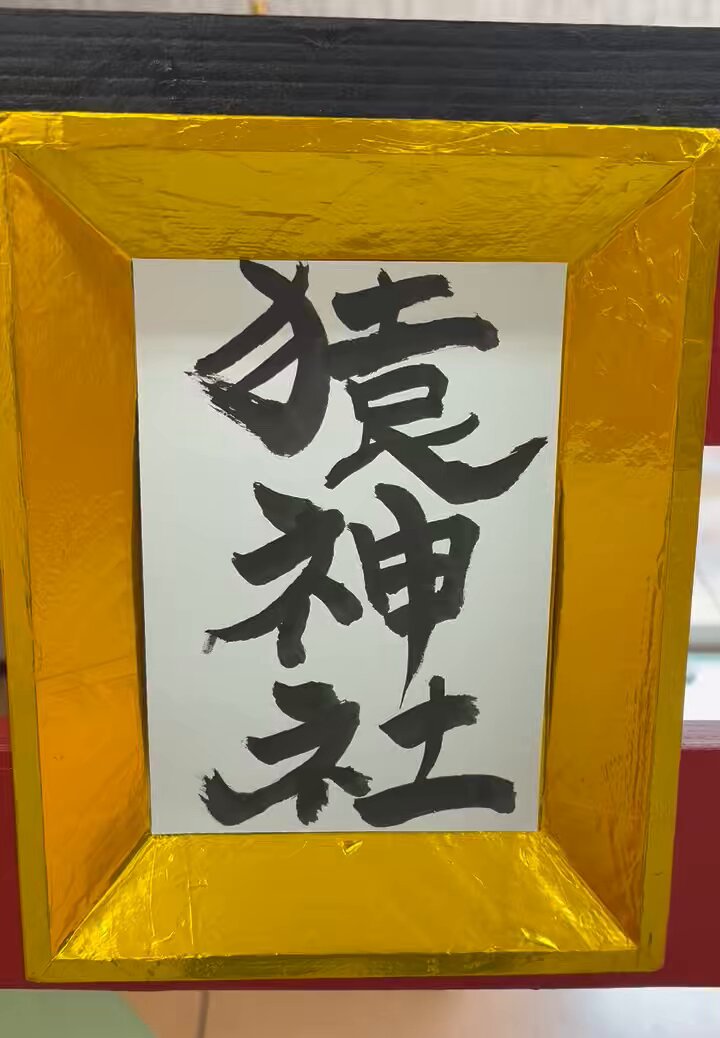 猿神社